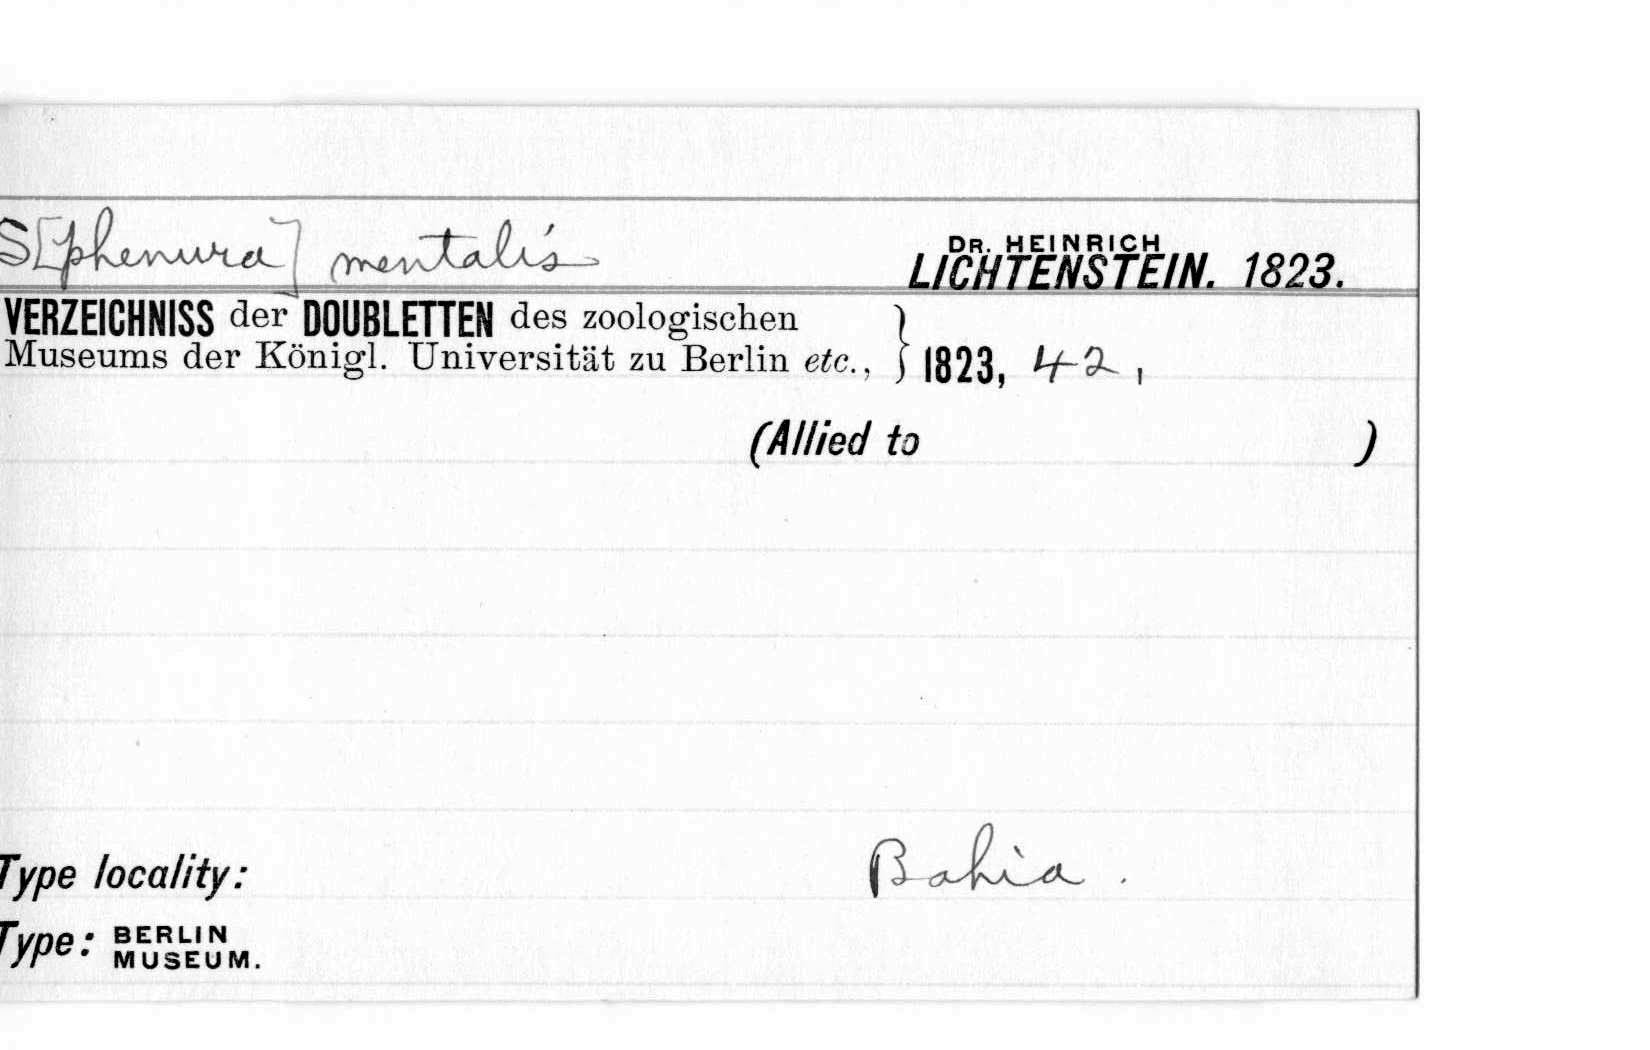 S[phenura] mentalis
DR. HEINRICH
LICHTENSTEIN. 1823.
VERZEICHNISS der DOUBLETTEN des zoologischen
Museums der Königl. Universität zu Berlin etc., } 1823, 42,
(Allied to )
Type locality: Bahia.
Type: BERLIN
MUSEUM.